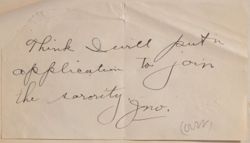 Think I will put n
application to join
the sorority.
Jno.